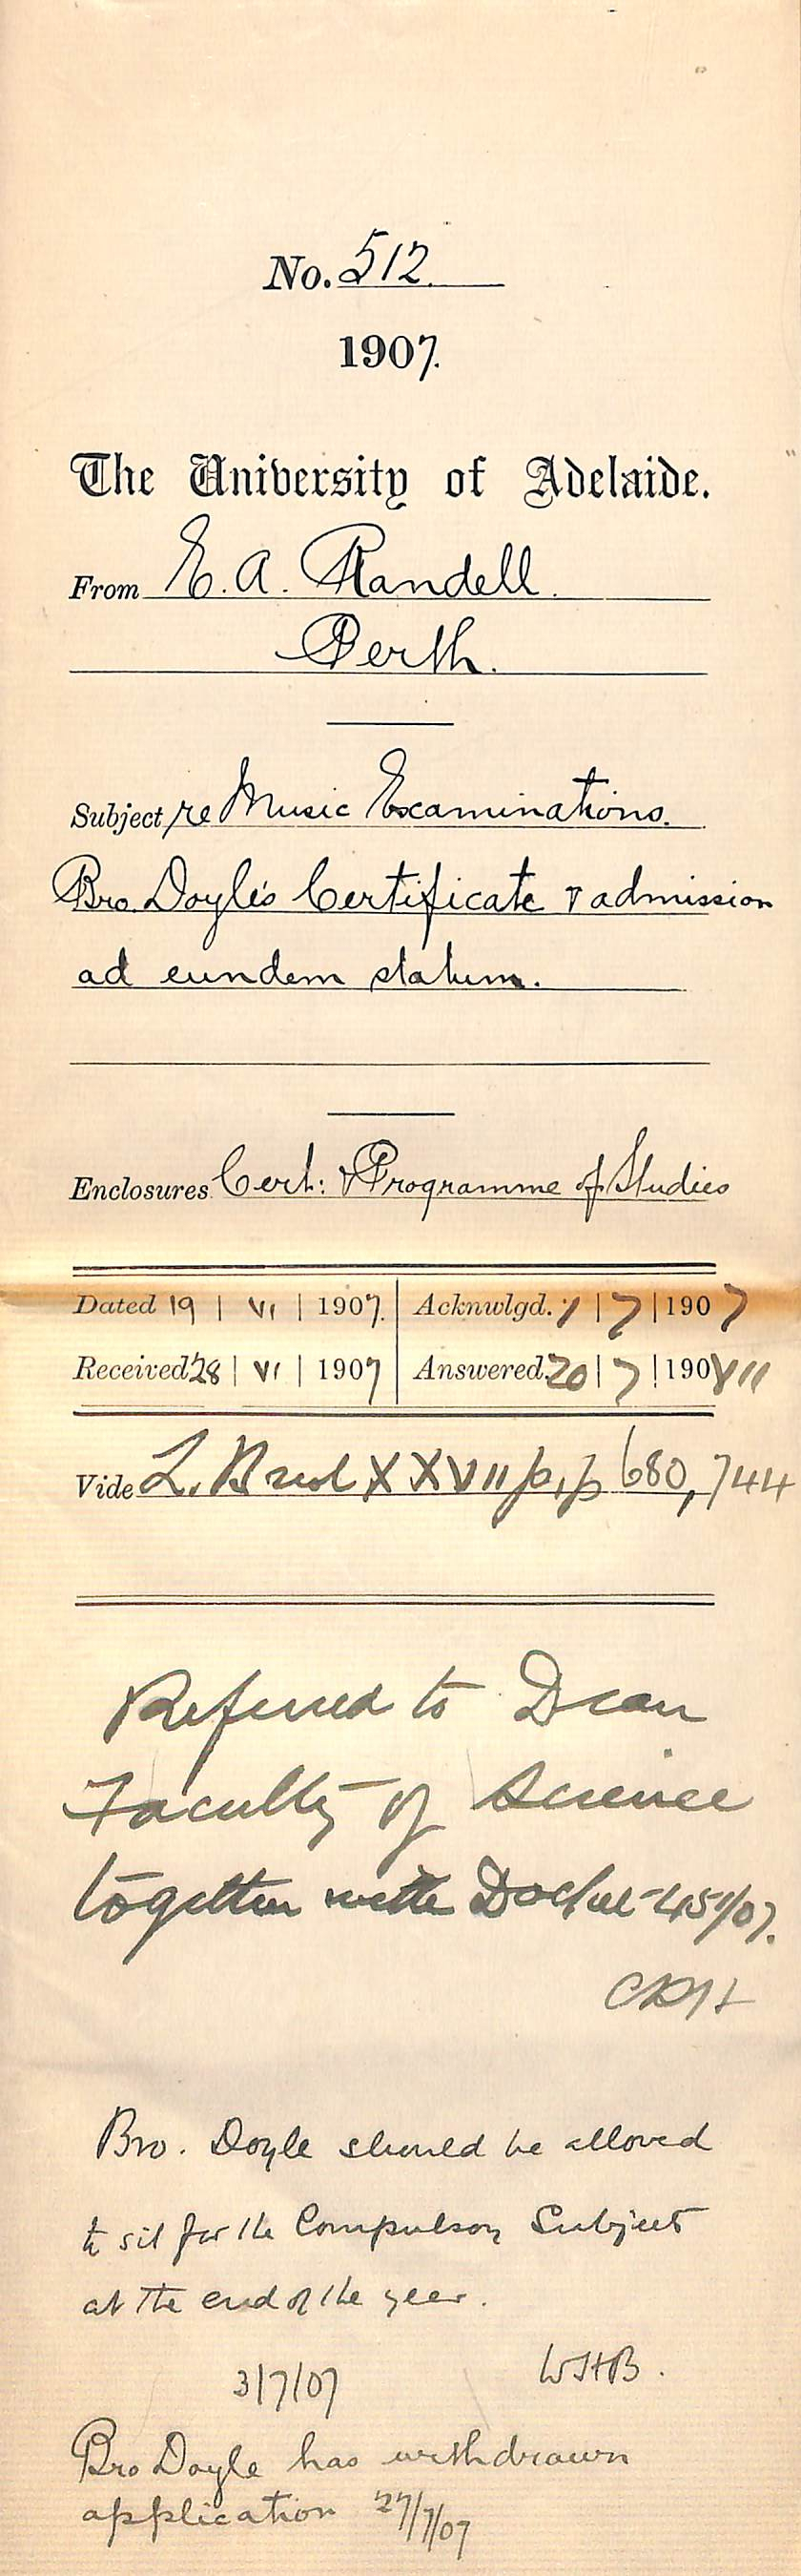 No. 512.
1907.
The University of Adelaide.
From E. A. Randell.
Perth.
Subject re Music Examinations.
Bro. Doyle's Certificate & admission
ad eundem statum.
Enclosures Cert: & Programme of Studies
Dated 19 | VI | 1907. Acknwlgd. 1 | 7 | 1907
Received 28 | VI | 1907 Answered. 20 | 7 | 190VII
Vide L. Book XXVII p.p 680, 744
Referred to Dean
Faculty of Science
together with Docket 451/07.
CRH
Bro. Doyle should be allowed
to sit for the Compulsory Subject
at the end of the year.
3/7/07 WHB.
Bro Doyle has withdrawn
application 27/7/07